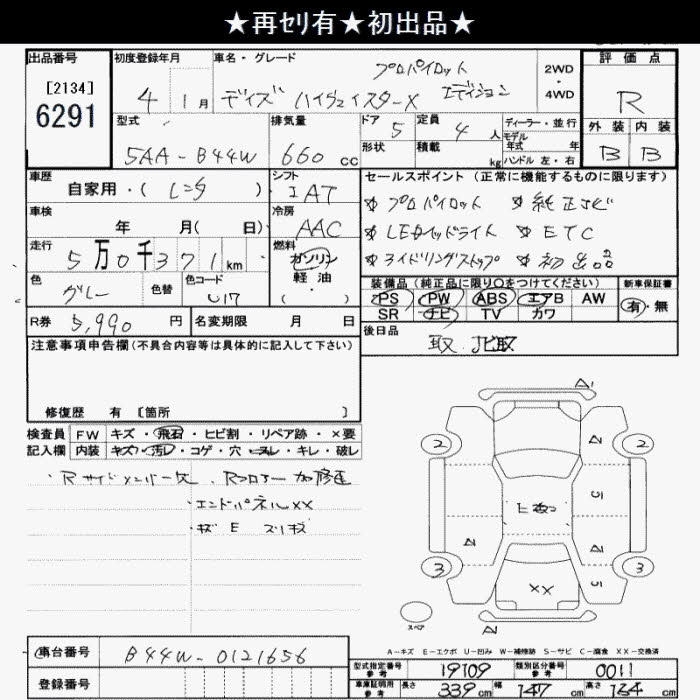 ★再ｾﾘ有★初出品★
出品番号 初度登録年月 車名・グレード 評価点
[2134]
6291
4 1 月 デイズ ハイウェイスターX プロパイロット エディション
2WD
・
4WD
R
型式 排気量 ドア 定員 ディーラー・並行 外装 内装
5AA-B44W 660 cc 5 4 人 モデル年式 年 B B
形状 積載 kg ハンドル 左・右
車歴 シフト セールスポイント (正常に機能するものに限ります)
自家用・( レンタ ) IAT
☆プロパイロット ☆純正ナビ
車検 冷房
年 月( 日) AAC
☆LEDヘッドライト ☆ETC
走行 燃料
5万0千371km ガソリン
軽油
・
( )
☆アイドリングストップ ☆初出品
色 色替 色コード
グレー
装備品 (純正品に限り○をつけてください) 新車保証書
PS PW ABS エアB AW 有・無
SR ナビ TV カワ
R券 5,990 円 名変期限 月 日
後日品
取、記取
注意事項申告欄 (不具合内容等は具体的に記入して下さい)
修復歴 有 [箇所 ]
検査員 FW キズ・飛石・ヒビ割・リペア跡・×要
記入欄 内装 キズ・汚レ・コゲ・穴・ヌレ・キレ・破レ
・Rサイドメンバー欠、Rフロアー加修正
・エンドパネルXX
・キズ E スリキズ
A1
2 2
A
U
E
A A
3 3
XX
U
スペア
A
A-キズ E-エクボ U-凹み W-補修跡 S-サビ C-腐食 XX-交換済
車台番号 B44W-0121656
登録番号
型式指定番号 参考 19109 類別区分番号 参考 0011
車庫証明用 参考 長さ 339 cm 幅 147 cm 高さ 164 cm